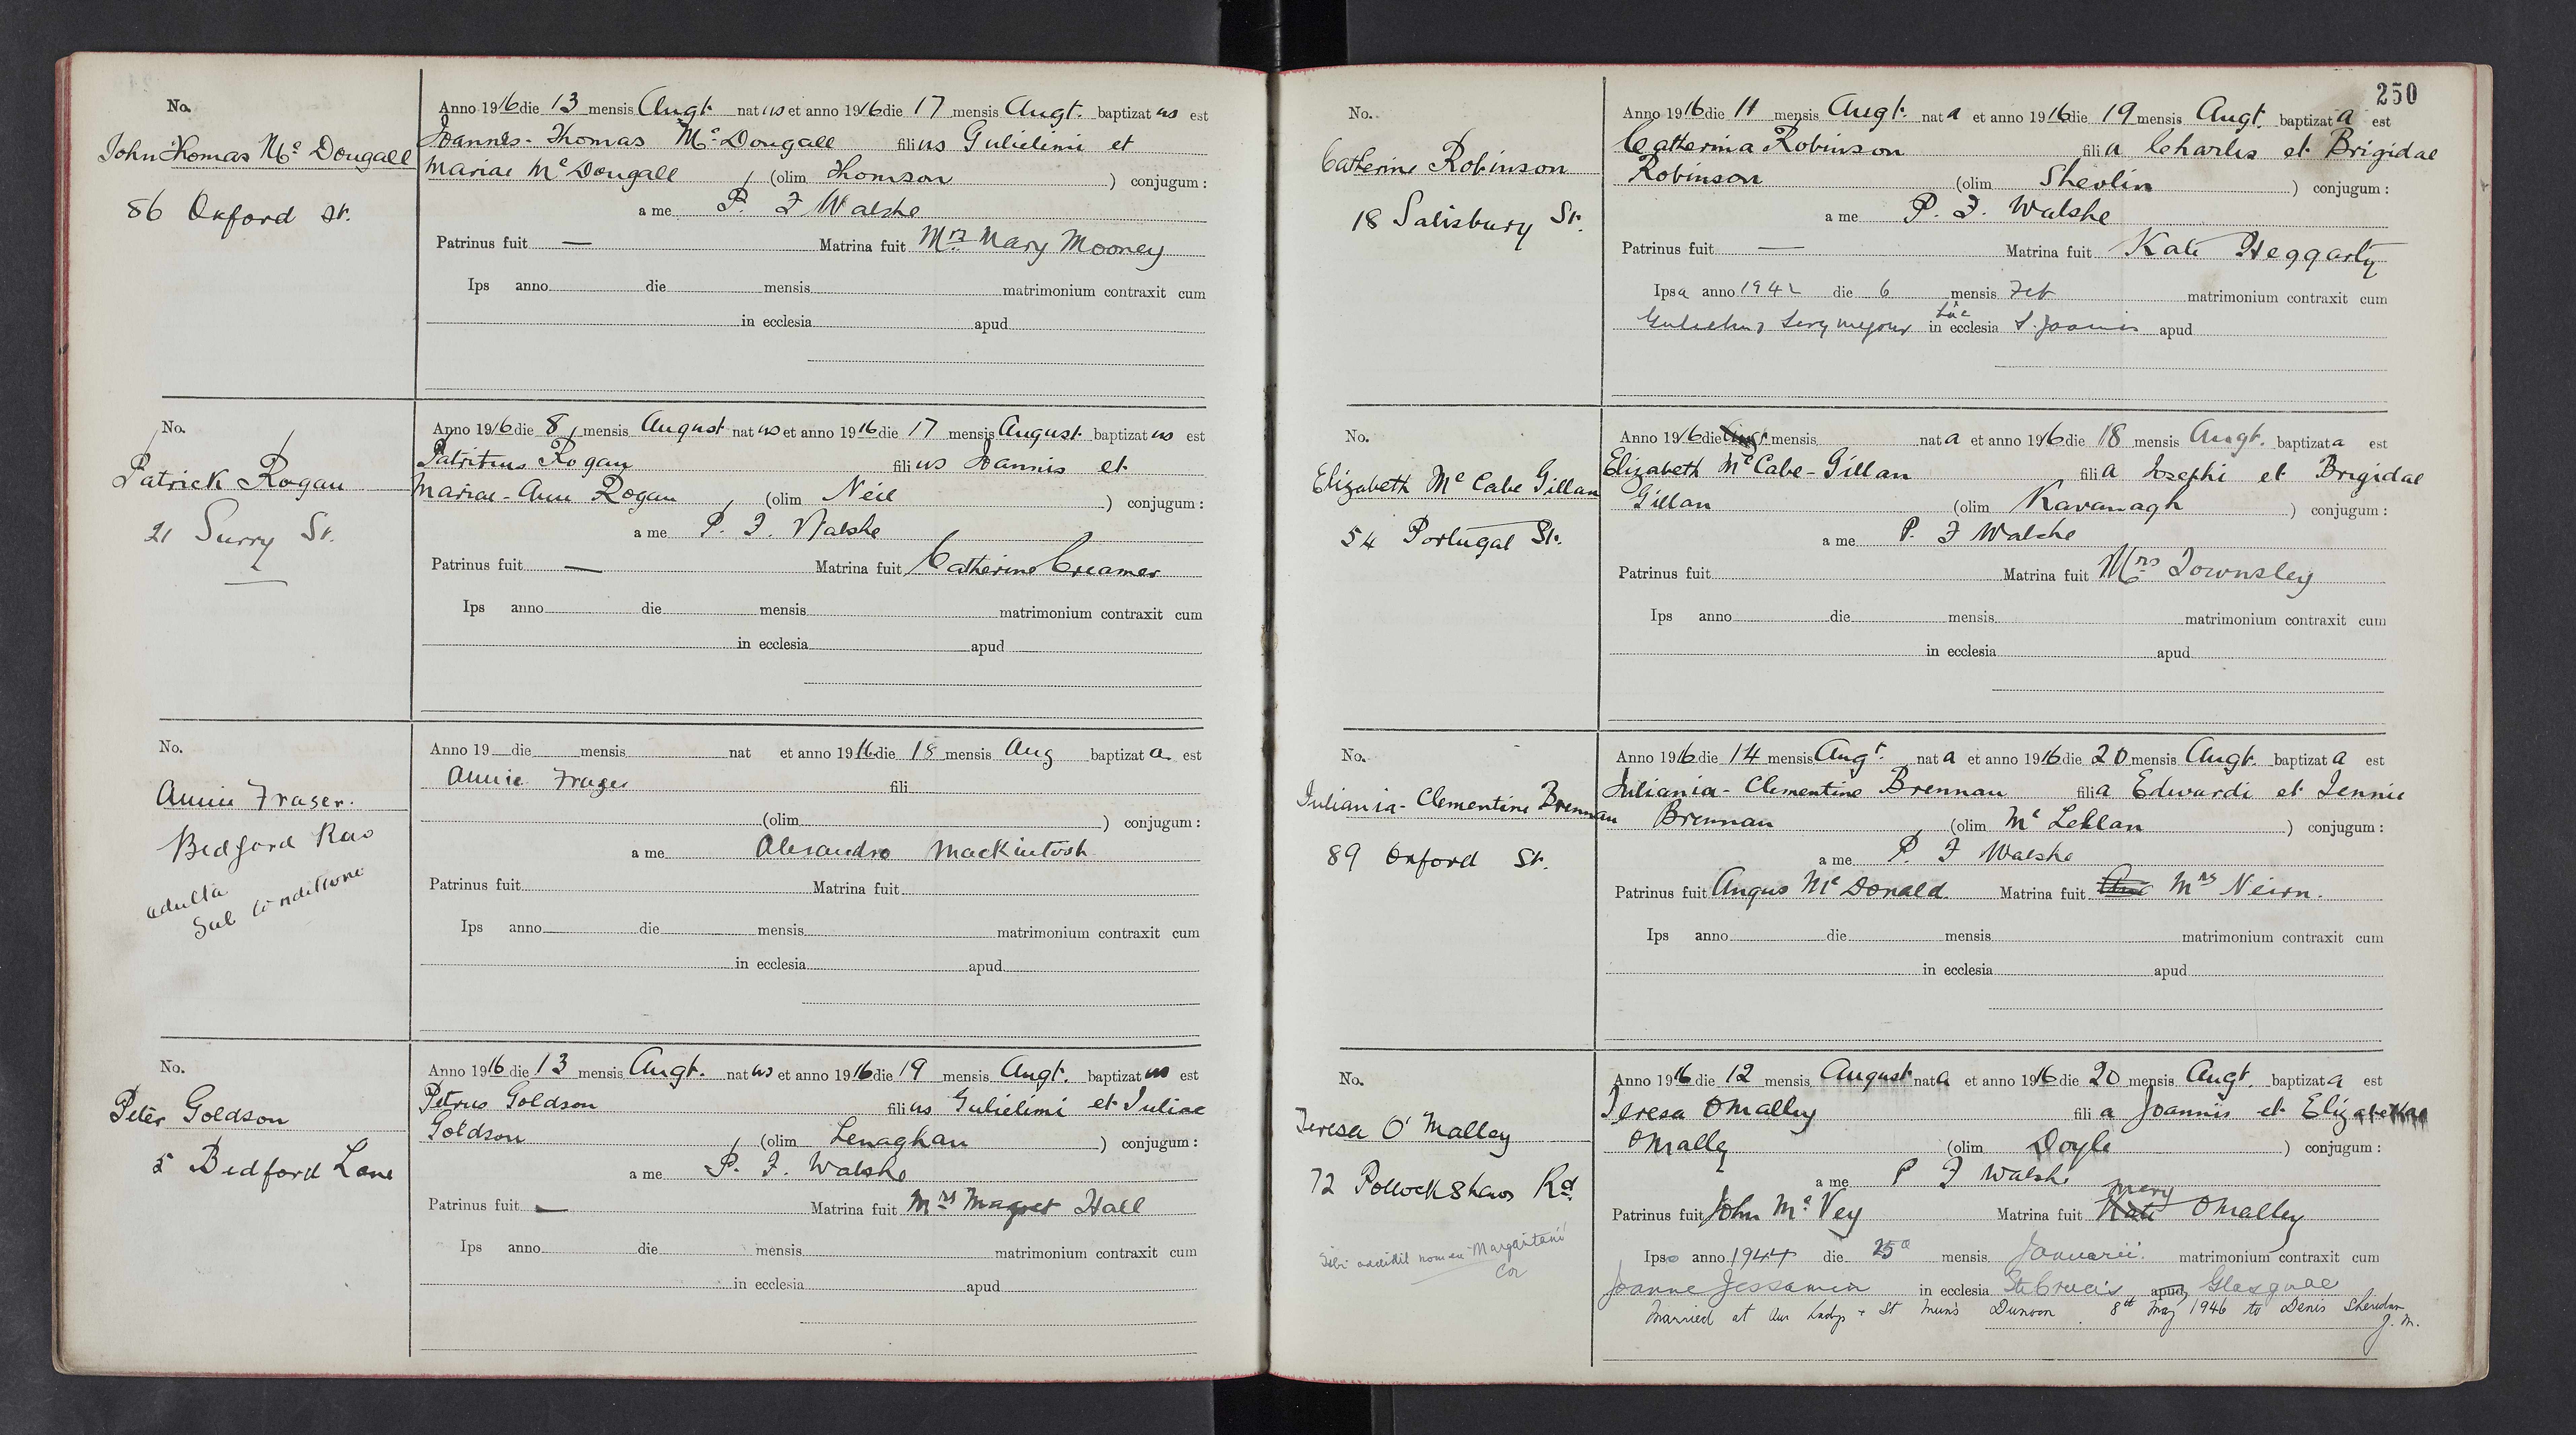 No.
John Thomas Mc Dougall
86 Oxford St.
Anno 1916 die 13 mensis Augt. natus et anno 1916 die 17 mensis Augt. baptizatus est
Joannes-Thomas Mc Dougall filius Gulielimi et
Mariae Mc Dougall (olim Thomson ) conjugum:
a me P. F Walshe
Patrinus fuit — Matrina fuit Mrs Mary Mooney
Ips anno die mensis matrimonium contraxit cum
in ecclesia apud
No.
Patrick Rogan
21 Surry St.
Anno 1916 die 8 mensis August natus et anno 1916 die 17 mensis August. baptizatus est
Patritius Rogan filius Joannis et
Mariae-Ann Rogan (olim Neil ) conjugum:
a me P. F. Walshe
Patrinus fuit — Matrina fuit Catherine Creamer
Ips anno die mensis matrimonium contraxit cum
in ecclesia apud
No.
Annie Fraser.
Bedford Row
adulta
sub conditione
Anno 19 die mensis nat et anno 1916 die 18 mensis Aug baptizata est
Annie Fraser fili
(olim ) conjugum:
a me Alexandro Mackintosh
Patrinus fuit Matrina fuit
Ips anno die mensis matrimonium contraxit cum
in ecclesia apud
No.
Peter Goldson
5 Bedford Lane
Anno 1916 die 13 mensis Augt. natus et anno 1916 die 19 mensis Augt. baptizatus est
Petrus Goldson filius Gulielimi et Juliae
Goldson (olim Lenaghan ) conjugum:
a me P. F. Walshe
Patrinus fuit — Matrina fuit Mrs Magret Hall
Ips anno die mensis matrimonium contraxit cum
in ecclesia apud
250
No.
Catherine Robinson
18 Salisbury St.
Anno 1916 die 11 mensis Augt. nata et anno 1916 die 19 mensis Augt. baptizata est
Catherina Robinson filia Charles et Brigidae
Robinson (olim Shevlin ) conjugum:
a me P. F. Walshe
Patrinus fuit — Matrina fuit Kate Heggarty
Ipsa anno 1942 die 6 mensis Feb matrimonium contraxit cum
in ecclesia S. Joannis apud
No.
Elizabeth Mc Cabe Gillan
54 Portugal St.
Anno 1916 die Augt. mensis nata et anno 1916 die 18 mensis Augt. baptizata est
Elizabeth Mc Cabe-Gillan filia Josephi et Brigidae
Gillan (olim Kavanagh ) conjugum:
a me P. F Walshe
Patrinus fuit Matrina fuit Mrs Townsley
Ips anno die mensis matrimonium contraxit cum
in ecclesia apud
No.
Juliania-Clementine Brennan
89 Oxford St.
Anno 1916 die 14 mensis Augt. nata et anno 1916 die 20 mensis Augt. baptizata est
Juliania-Clementine Brennan filia Edwardi et Jennie
Brennan (olim Mc Lellan ) conjugum:
a me P. F Walshe
Patrinus fuit Angus Mc Donald Matrina fuit Mrs Neirn.
Ips anno die mensis matrimonium contraxit cum
in ecclesia apud
No.
Teresa O'Malley
72 Pollockshaws Rd.
Sibi addidit nomen Margaritam
Anno 1916 die 12 mensis August nata et anno 1916 die 20 mensis Augt. baptizata est
Teresa OMalley filia Joannis et Elizabethae
OMalley (olim Doyle ) conjugum:
a me P F Walshe
Mary
Patrinus fuit John Mc Vey Matrina fuit Kate OMalley
Ipso anno 1944 die 25a mensis Januarii. matrimonium contraxit cum
Joanne Jessamin in ecclesia Ste Crucis, apud Glasguae
Married at Our Lady & St Mun's Dunoon. 8th May 1946 to Denis Sheridan
J. M.